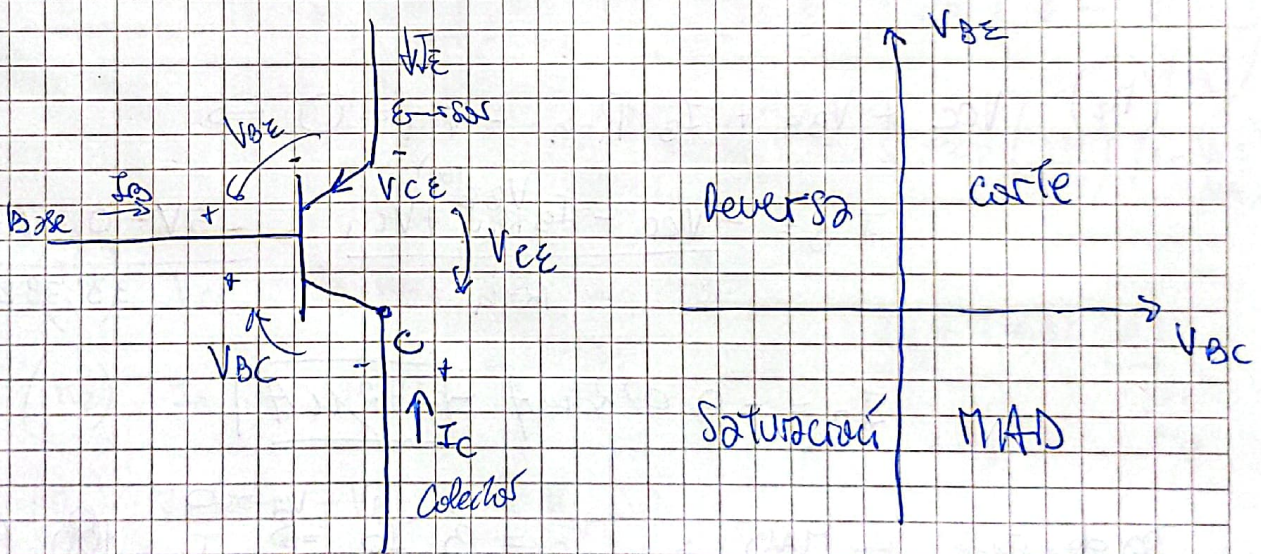 ↓IE
Emisor
VBE
-
-
VCE
IB
Base
+
VCE
+
VBC
C
-
+
↑IC
Colector
VBE
Reversa
Corte
VBC
Saturación
MAD